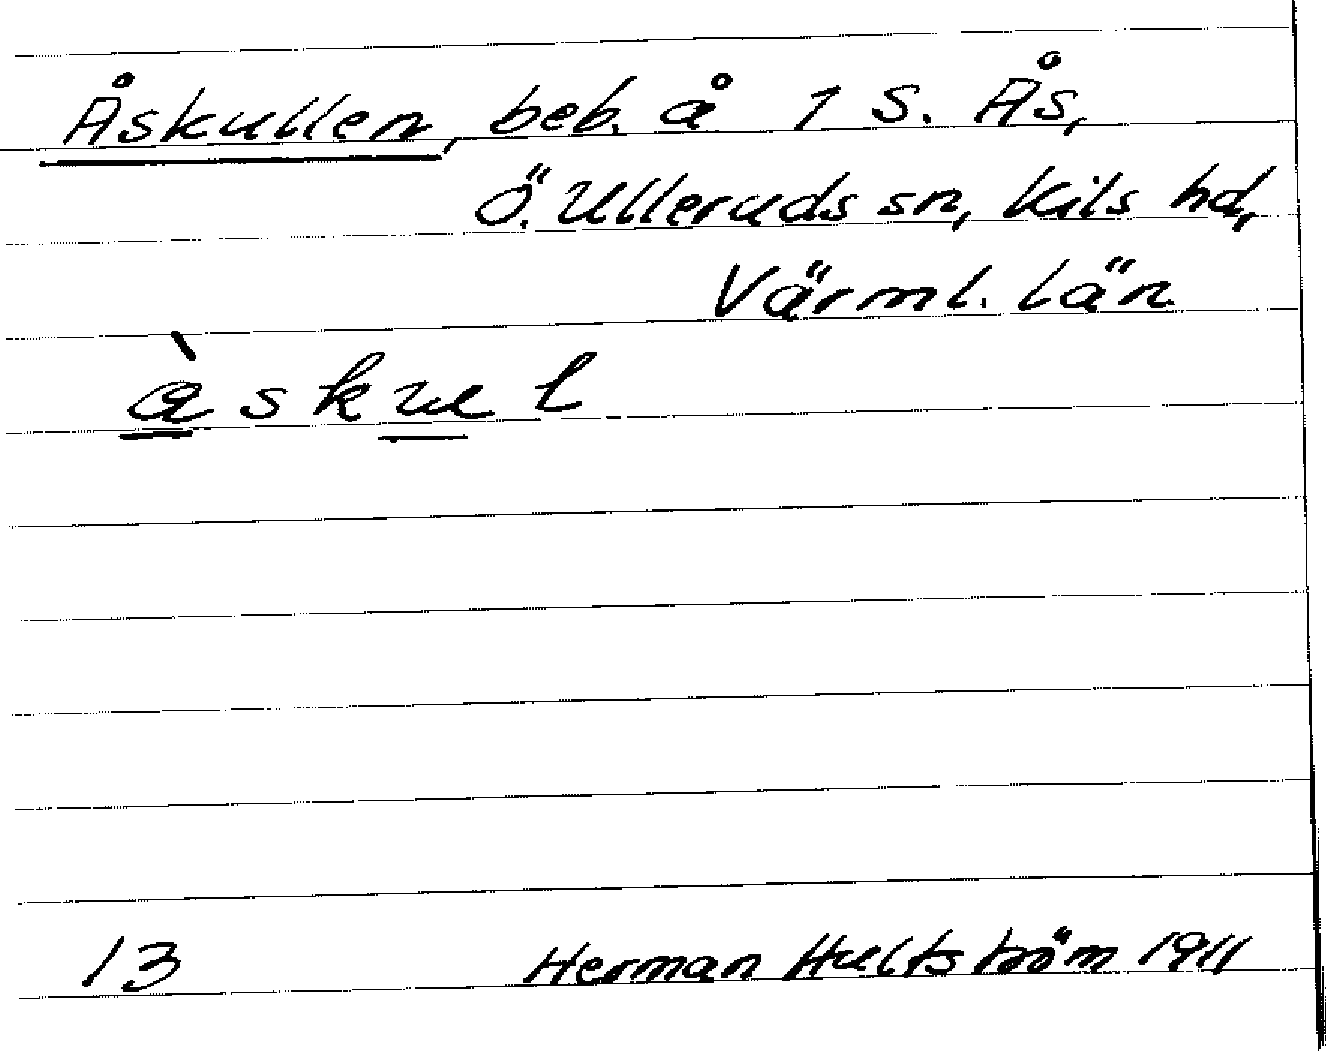 Åskullen, beb. å 1 S. Ås,
Ö. Ulleruds sn, Kils hd,
Värml. län
àskul
13 Herman Hultström 1911